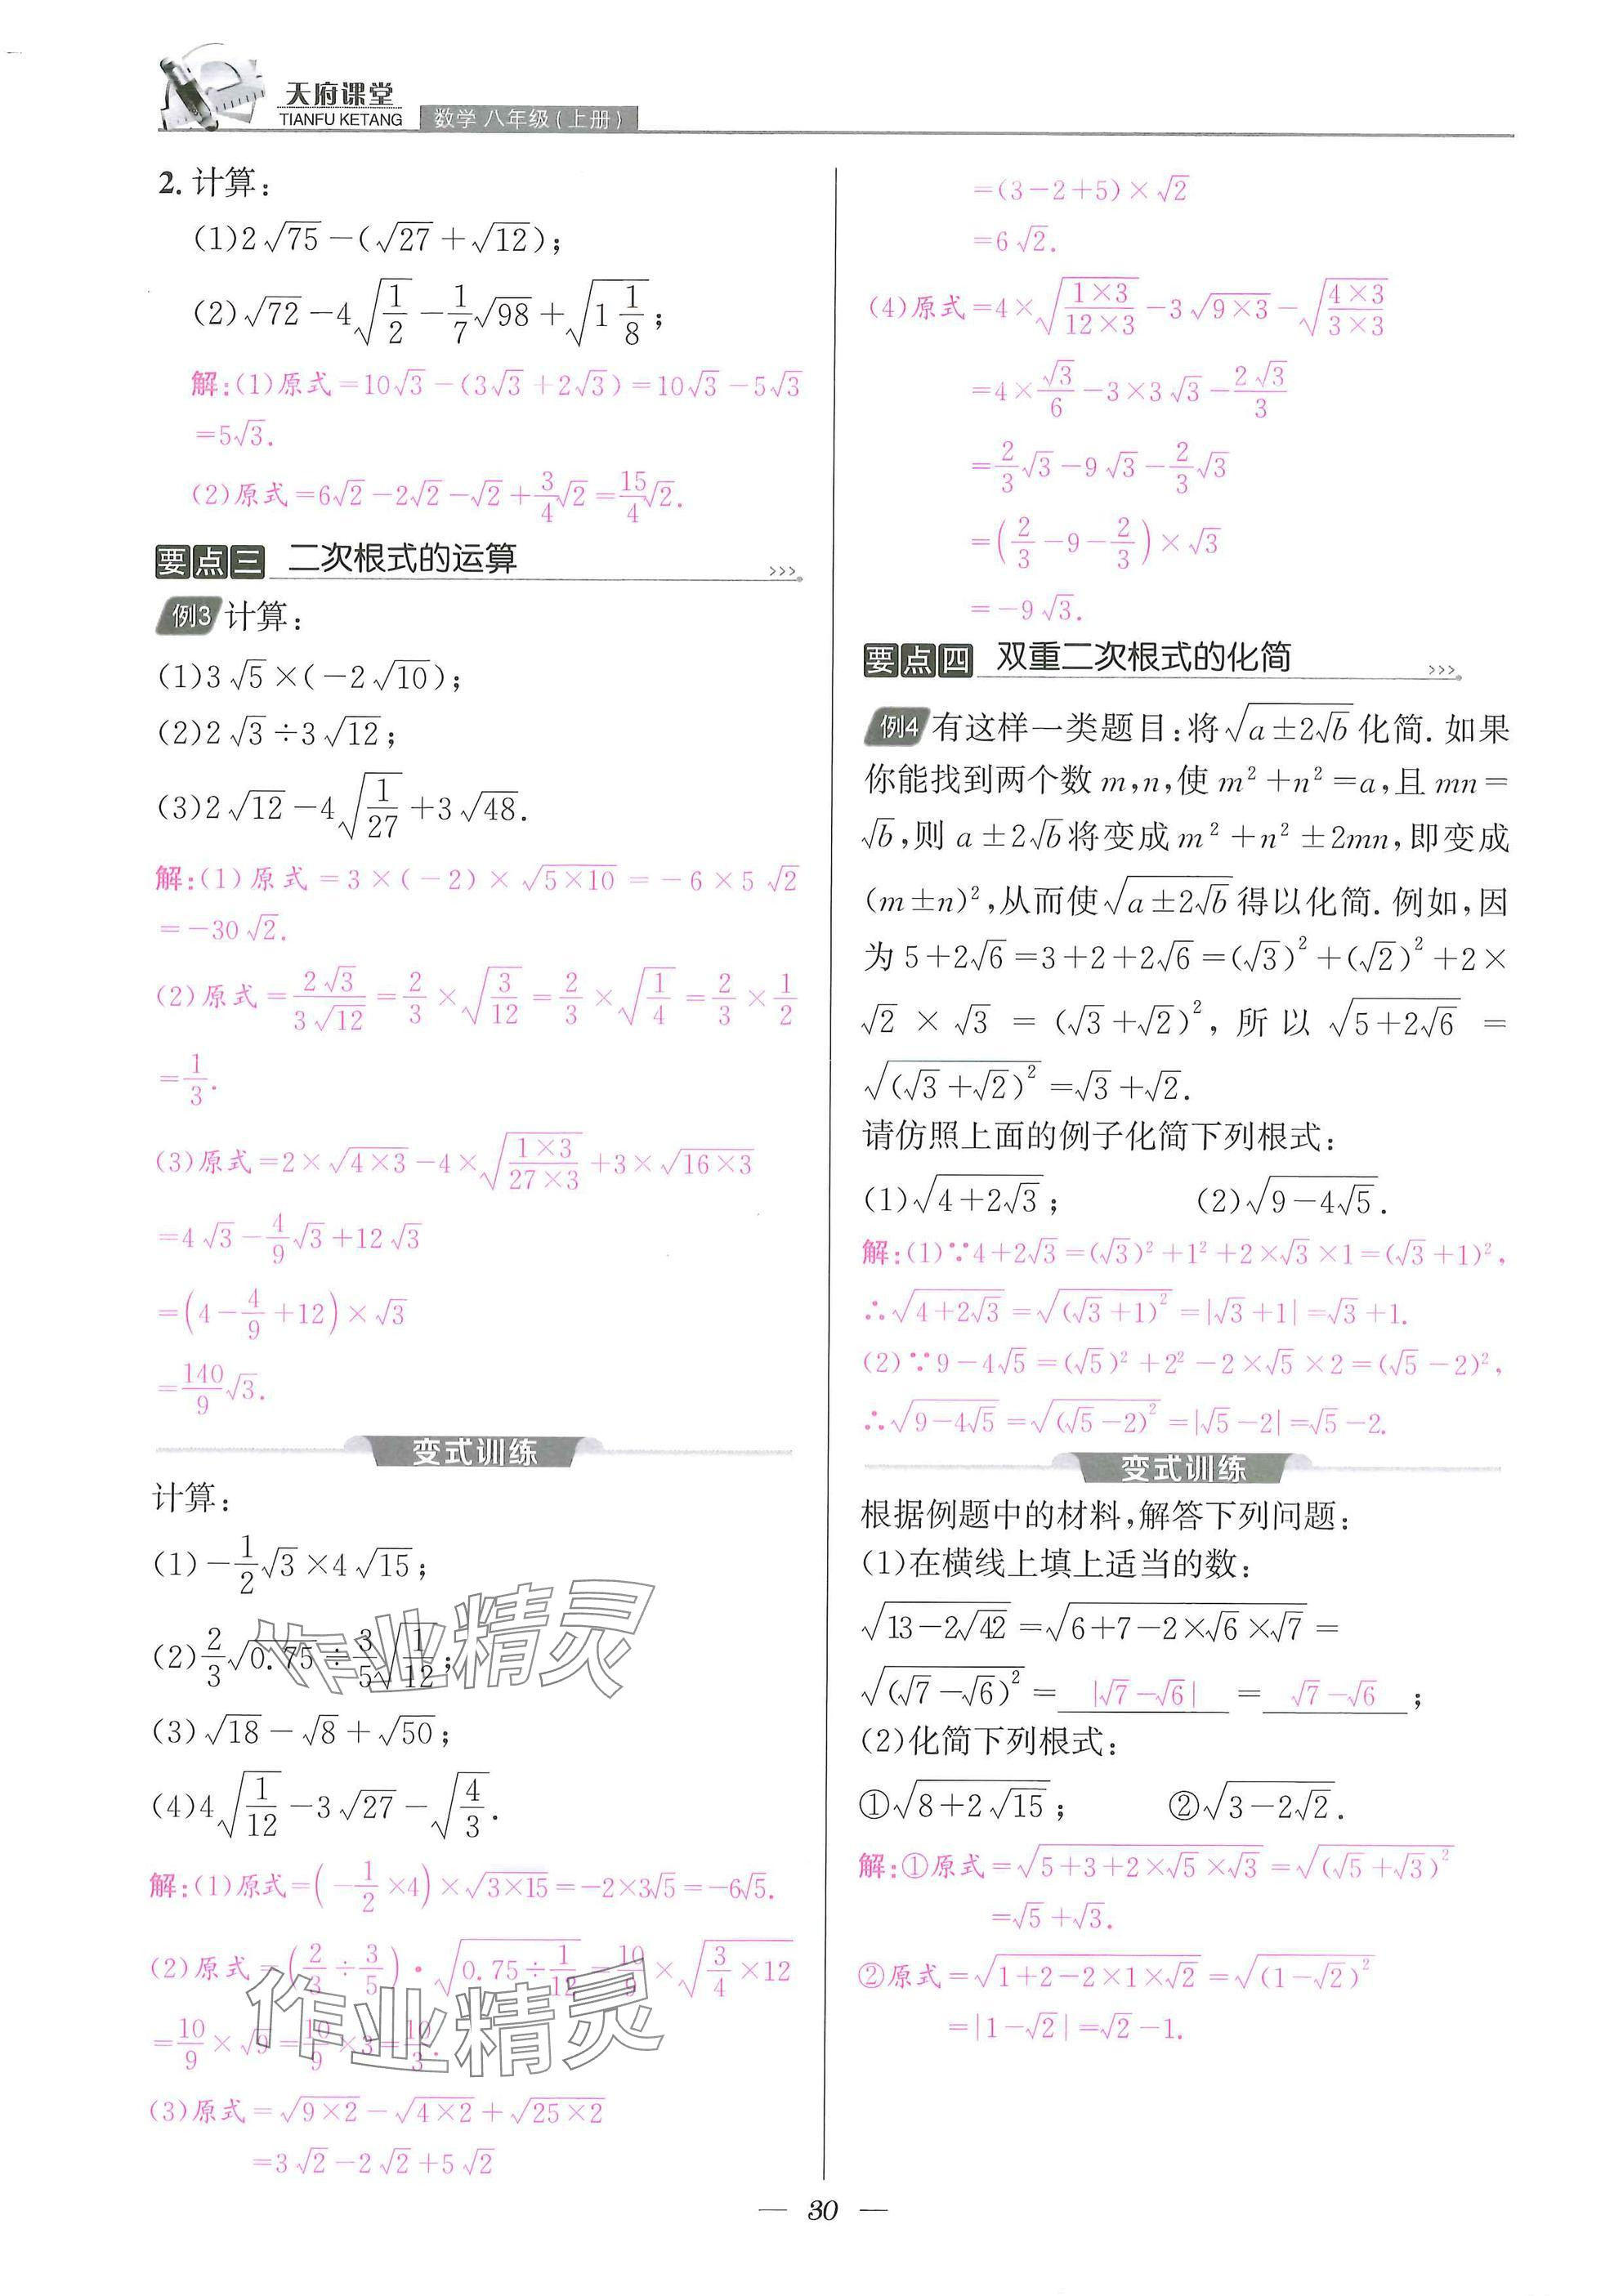 天府课堂
TIANFU KETANG 数学 八年级(上册)
2. 计算:
(1)2√75-(√27+√12);
(2)√72-4√(1/2)-(1/7)√98+√(1 1/8);
解:(1)原式=10√3-(3√3+2√3)=10√3-5√3
=5√3.
(2)原式=6√2-2√2-√2+(3/4)√2=(15/4)√2.
要点三 二次根式的运算 >>>
例3 计算:
(1)3√5×(-2√10);
(2)2√3÷3√12;
(3)2√12-4√(1/27)+3√48.
解:(1)原式=3×(-2)×√(5×10)=-6×5√2
=-30√2.
(2)原式=(2√3)/(3√12)=2/3×√(3/12)=2/3×√(1/4)=2/3×1/2
=1/3.
(3)原式=2×√(4×3)-4×√((1×3)/(27×3))+3×√(16×3)
=4√3-(4/9)√3+12√3
=(4-4/9+12)×√3
=(140/9)√3.
变式训练
计算:
(1)-(1/2)√3×4√15;
(2)(2/3)√0.75÷(3/5)√(1/12);
(3)√18-√8+√50;
(4)4√(1/12)-3√27-√(4/3).
解:(1)原式=(-1/2×4)×√(3×15)=-2×3√5=-6√5.
(2)原式=(2/3÷3/5)·√(0.75÷1/12)=10/9×√(3/4×12)
=10/9×√9=10/9×3=10/3.
(3)原式=√(9×2)-√(4×2)+√(25×2)
=3√2-2√2+5√2
=(3-2+5)×√2
=6√2.
(4)原式=4×√((1×3)/(12×3))-3√(9×3)-√((4×3)/(3×3))
=4×(√3)/6-3×3√3-(2√3)/3
=(2/3)√3-9√3-(2/3)√3
=(2/3-9-2/3)×√3
=-9√3.
要点四 双重二次根式的化简 >>>
例4 有这样一类题目:将√(a±2√b)化简. 如果
你能找到两个数 m,n,使 m²+n²=a,且 mn=
√b,则 a±2√b将变成 m²+n²±2mn,即变成
(m±n)²,从而使√(a±2√b)得以化简. 例如,因
为 5+2√6=3+2+2√6=(√3)²+(√2)²+2×
√2×√3=(√3+√2)²,所以√(5+2√6)=
√((√3+√2)²)=√3+√2.
请仿照上面的例子化简下列根式:
(1)√(4+2√3); (2)√(9-4√5).
解:(1)∵4+2√3=(√3)²+1²+2×√3×1=(√3+1)²,
∴√(4+2√3)=√((√3+1)²)=|√3+1|=√3+1.
(2)∵9-4√5=(√5)²+2²-2×√5×2=(√5-2)²,
∴√(9-4√5)=√((√5-2)²)=|√5-2|=√5-2.
变式训练
根据例题中的材料,解答下列问题:
(1)在横线上填上适当的数:
√(13-2√42)=√(6+7-2×√6×√7)=
√((√7-√6)²)= |√7-√6| = √7-√6 ;
(2)化简下列根式:
①√(8+2√15); ②√(3-2√2).
解:①原式=√(5+3+2×√5×√3)=√((√5+√3)²)
=√5+√3.
②原式=√(1+2-2×1×√2)=√((1-√2)²)
=|1-√2|=√2-1.
作业精灵
作业精灵
— 30 —